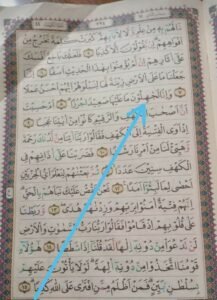 مَّا لَهُم بِهِۦ مِنْ عِلْمٍ وَلَا لِأٓبَآئِهِمْ كَبُرَتْ كَلِمَةً تَخْرُجُ مِنْ
أَفْوَٰهِهِمْ إِن يَقُولُونَ إِلَّا كَذِبًا ٥ فَلَعَلَّكَ بَٰخِعٌ نَّفْسَكَ
عَلَىٰٓ ءَاثَٰرِهِمْ إِن لَّمْ يُؤْمِنُوا۟ بِهَٰذَا ٱلْحَدِيثِ أَسَفًا ٦ إِنَّا
جَعَلْنَا مَا عَلَى ٱلْأَرْضِ زِينَةً لَّهَا لِنَبْلُوَهُمْ أَيُّهُمْ أَحْسَنُ عَمَلًا
٧ وَإِنَّا لَجَٰعِلُونَ مَا عَلَيْهَا صَعِيدًا جُرُزًا ٨ أَمْ حَسِبْتَ
أَنَّ أَصْحَٰبَ وَٱلرَّقِيمِ كَانُوا۟ مِنْ ءَايَٰتِنَا عَجَبًا ٩
إِذْ أَوَى ٱلْفِتْيَةُ إِلَى فَقَالُوا۟ رَبَّنَآ ءَاتِنَا مِن لَّدُنكَ رَحْمَةً
وَهَيِّئْ لَنَا مِنْ رَشَدًا ١٠ فَضَرَبْنَا عَلَىٰٓ ءَاذَانِهِمْ فِى
ٱلْكَهْفِ سِنِينَ عَدَدًا ١١
أَحْصَىٰ لِمَا لَبِثُوٓا۟ أَمَدًا ١٢ نَّحْنُ نَقُصُّ عَلَيْكَ نَبَأَهُم بِٱلْحَقِّ
إِنَّهُمْ فِتْيَةٌ ءَامَنُوا۟ بِرَبِّهِمْ وَزِدْنَٰهُمْ هُدًى ١٣ وَرَبَطْنَا
عَلَىٰ قُلُوبِهِمْ إِذْ قَامُوا۟ فَقَالُوا۟ رَبُّنَا رَبُّ ٱلسَّمَٰوَٰتِ وَٱلْأَرْضِ
لَن نَّدْعُوَا۟ مِن دُونِهِۦٓ إِلَٰهًا لَّقَدْ قُلْنَآ إِذًا شَطَطًا ١٤ هَٰٓؤُلَآءِ
قَوْمُنَا ٱتَّخَذُوا۟ مِن دُونِهِۦٓ ءَالِهَةً لَّوْلَا يَأْتُونَ عَلَيْهِم
بِسُلْطَٰنٍۭ بَيِّنٍ فَمَنْ أَظْلَمُ مِمَّنِ ٱفْتَرَىٰ عَلَى ٱللَّهِ كَذِبًا ١٥